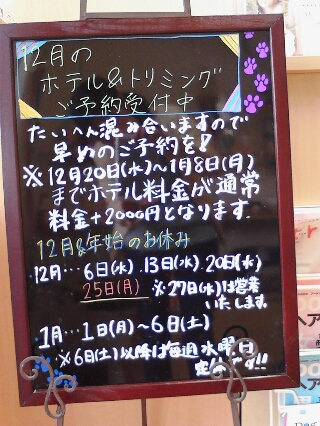 12月の
ホテル&トリミング
ご予約受付中
たいへん混み合いますので
早めのご予約を!
※12月20日(水)～1月8日(月)
までホテル料金が通常
料金+2000円となります.
12月&年始のお休み
12月…6日(水).13日(水).20日(水)
25日(月) ※27日(水)は営業
いたします.
1月…1日(月)～6日(土)
※6日(土)以降は毎週水曜日
定休です!!